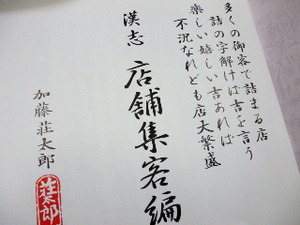 多くの御客で詰まる店
詰の字解けば吉を言う
楽しい嬉しい吉あれば
不況なれども店大繁盛
漢志 店舗集客編
加藤荘太郎
荘太郎